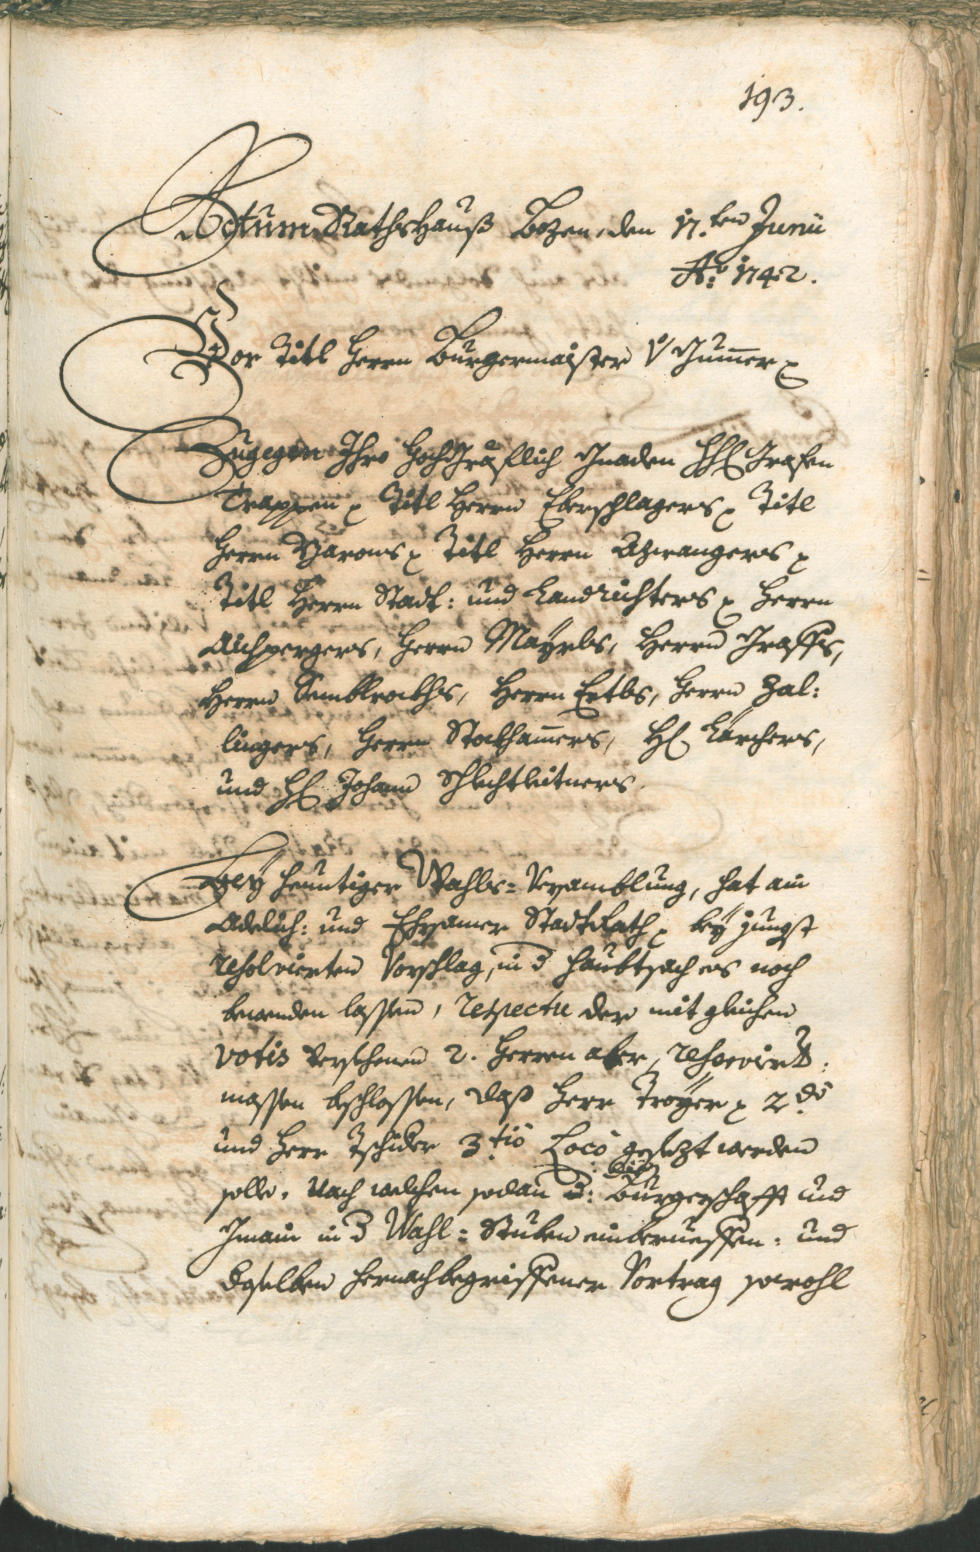 193.
Actum Rathshauß Bozen, den 17.ten Junii
Ao: 1742.
Vor Titl Herrn Burgermaister V Gumer
Zugegen Ihro Hochgräflich Gnaden HH Grafen
Trappen Titl Herrn Eberschlagers Titl
Herrn Titl Herrn Azwangers
Titl Herrn Stadt: und Landrichters Herrn
Aichpergers, Herrn Mayrls, Herrn Graffs,
Herrn Herrn Ertls, Herrn Zal:
lingers, Herrn Stockhamers, H Karchers,
und H Johann Schlechtleitners.
Bey heuntiger Wahls=Versamblung, hat ain
Adelich: und Ehrsamer Stadtrath bey jüngst
resolvierten Vorschlag in d Haubtsach es noch
bewenden lassen, respectu der mit gleichen
votis versehenen 2. Herren aber, reservirt:
massen beschlossen, daß Herr Troyer 2do
und Herr Tschider 3.tio Loco gesetzt werden
solle. Nach welchen sodan die Burgerschafft und
Gmain in d Wahl=Stuben einberueffen: und
deselben hernachbegriffener Vortrag sowohl